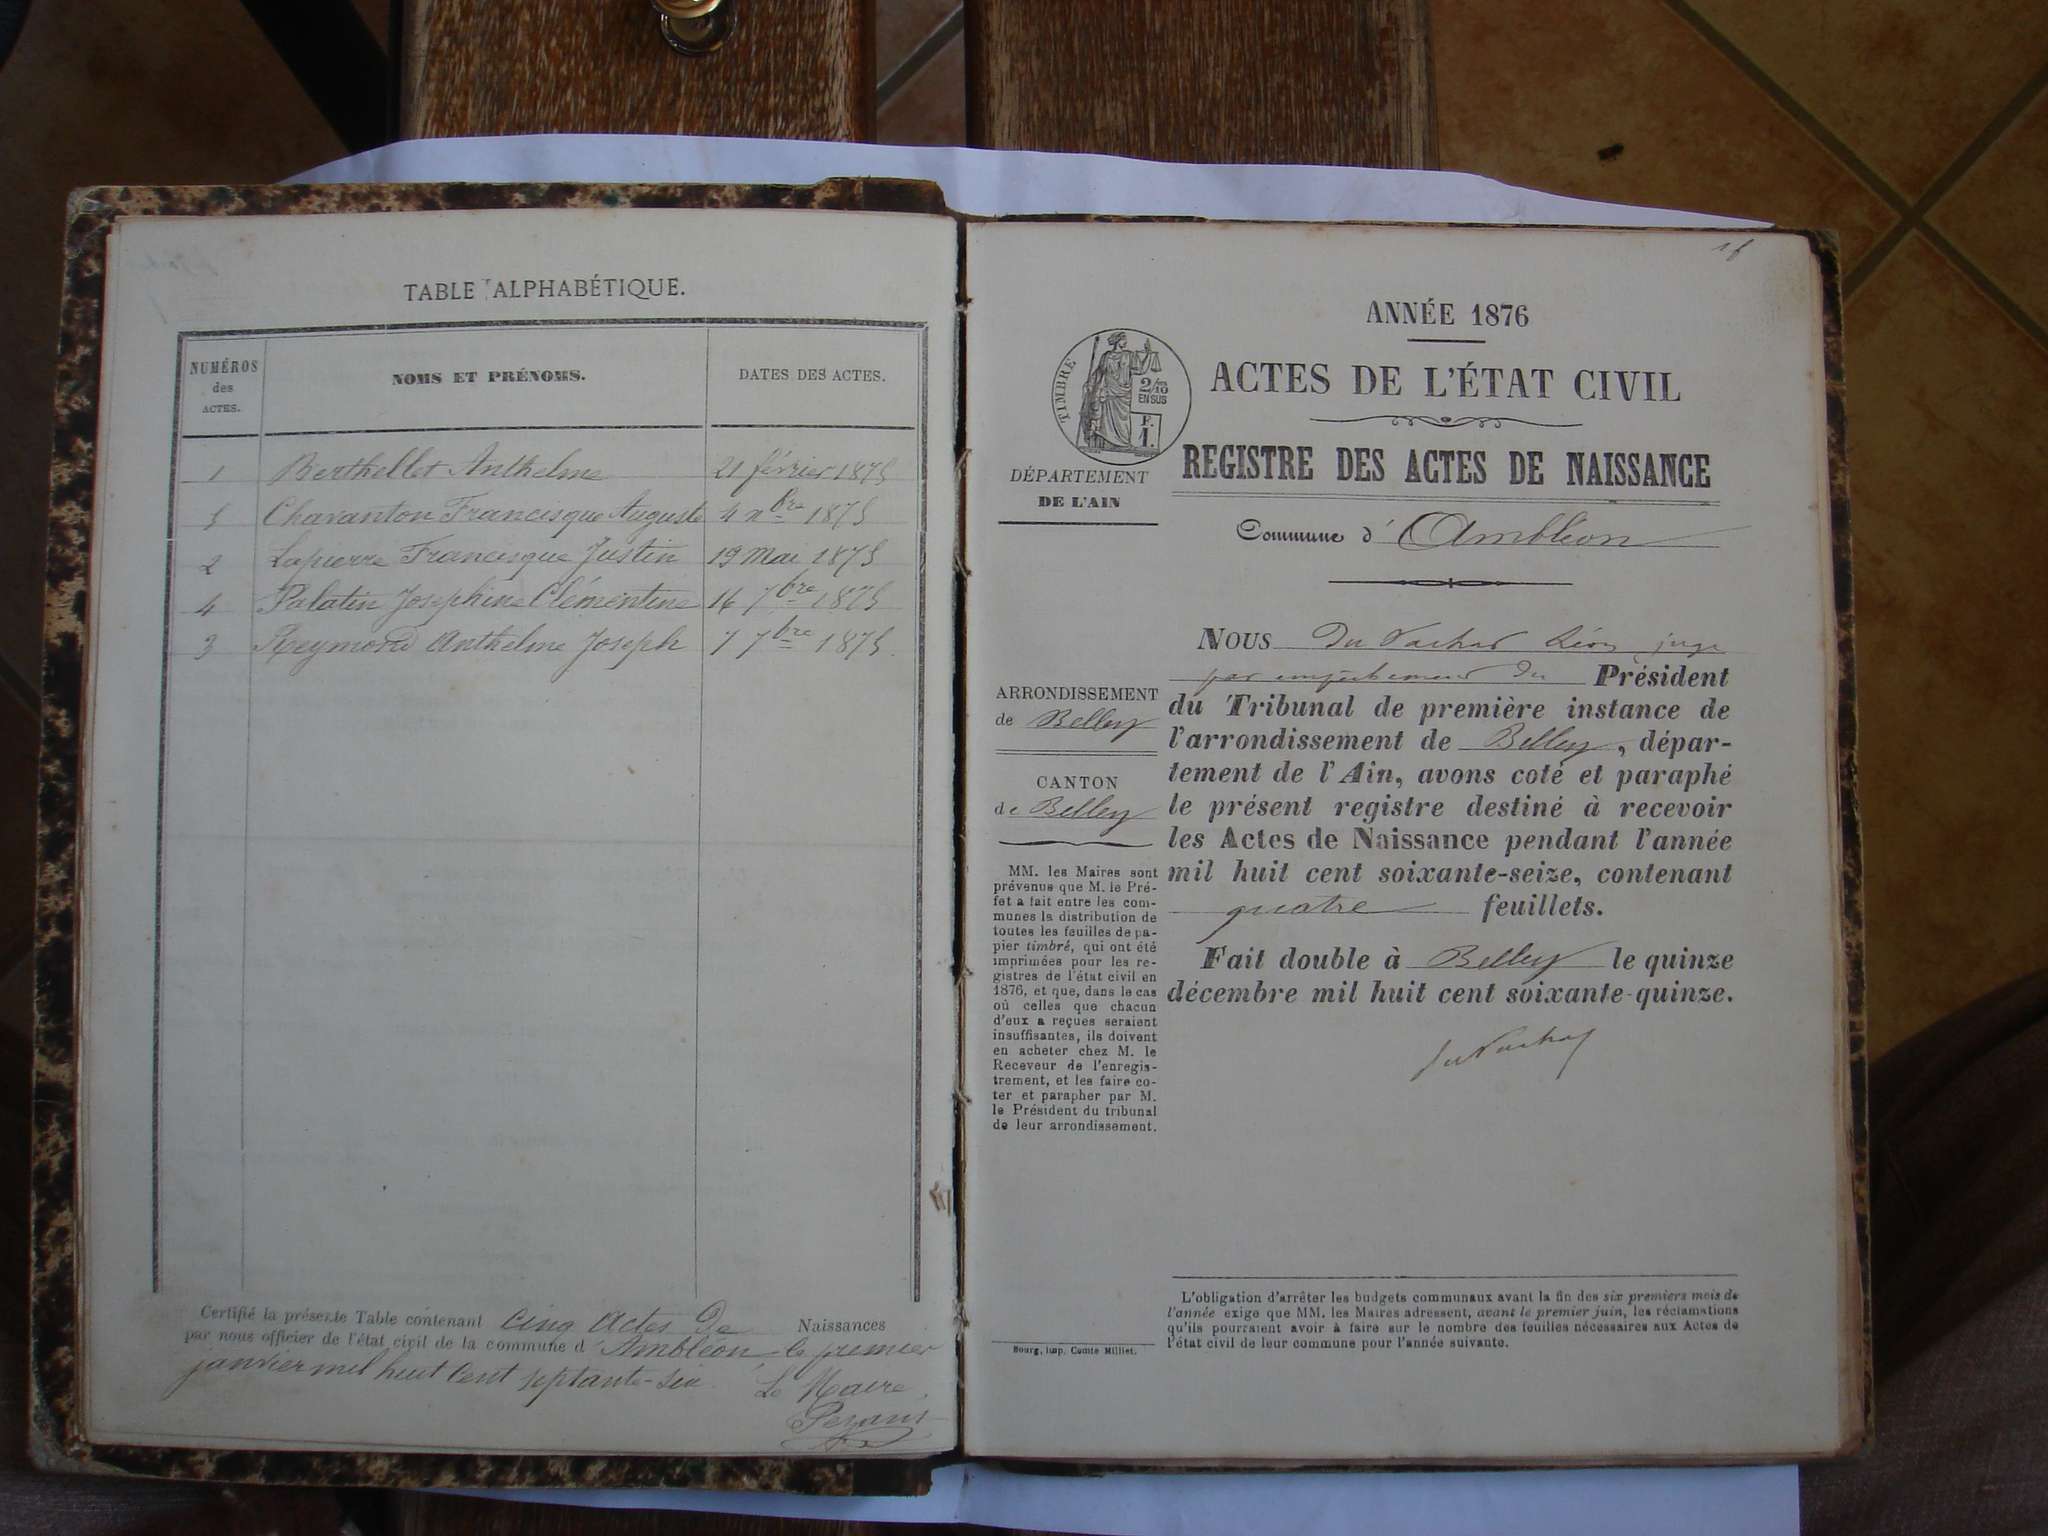 TABLE ALPHABÉTIQUE.
NUMÉROS des ACTES. NOMS ET PRÉNOMS. DATES DES ACTES.
1 Berthellet Anthelme 21 février 1875
5 Chavanton Francisque Auguste 4 xbre 1875
2 Lapierre Francisque Justin 19 Mai 1875
4 Palatin Joséphine Clémentine 16 7bre 1875
3 Reymond Anthelme Joseph 7 7bre 1875
Certifié la présente Table contenant cinq actes De Naissances
par nous officier de l'état civil de la commune d'Ambléon le premier
janvier mil huit cent septante-six. Le Maire,
ANNÉE 1876
ACTES DE L'ÉTAT CIVIL
TIMBRE
2/10
EN SUS
P.
1.
REGISTRE DES ACTES DE NAISSANCE
DÉPARTEMENT
DE L'AIN
Commune d'Ambléon
ARRONDISSEMENT
de Belley
CANTON
de Belley
MM. les Maires sont
prévenus que M. le Pré-
fet a fait entre les com-
munes la distribution de
toutes les feuilles de pa-
pier timbré, qui ont été
imprimées pour les re-
gistres de l'état civil en
1876, et que, dans le cas
où celles que chacun
d'eux a reçues seraient
insuffisantes, ils doivent
en acheter chez M. le
Receveur de l'enregis-
trement, et les faire co-
ter et parapher par M.
le Président du tribunal
de leur arrondissement.
NOUS Du Vachat Léon juge
par empêchement du Président
du Tribunal de première instance de
l'arrondissement de Belley, dépar-
tement de l'Ain, avons coté et paraphé
le présent registre destiné à recevoir
les Actes de Naissance pendant l'année
mil huit cent soixante-seize, contenant
quatre feuillets.
Fait double à Belley le quinze
décembre mil huit cent soixante-quinze.
Du Vachat
L'obligation d'arrêter les budgets communaux avant la fin des six premiers mois de
l'année exige que MM. les Maires adressent, avant le premier juin, les réclamations
qu'ils pourraient avoir à faire sur le nombre des feuilles nécessaires aux Actes de
l'état civil de leur commune pour l'année suivante.
Bourg, imp. Comte Milliet.